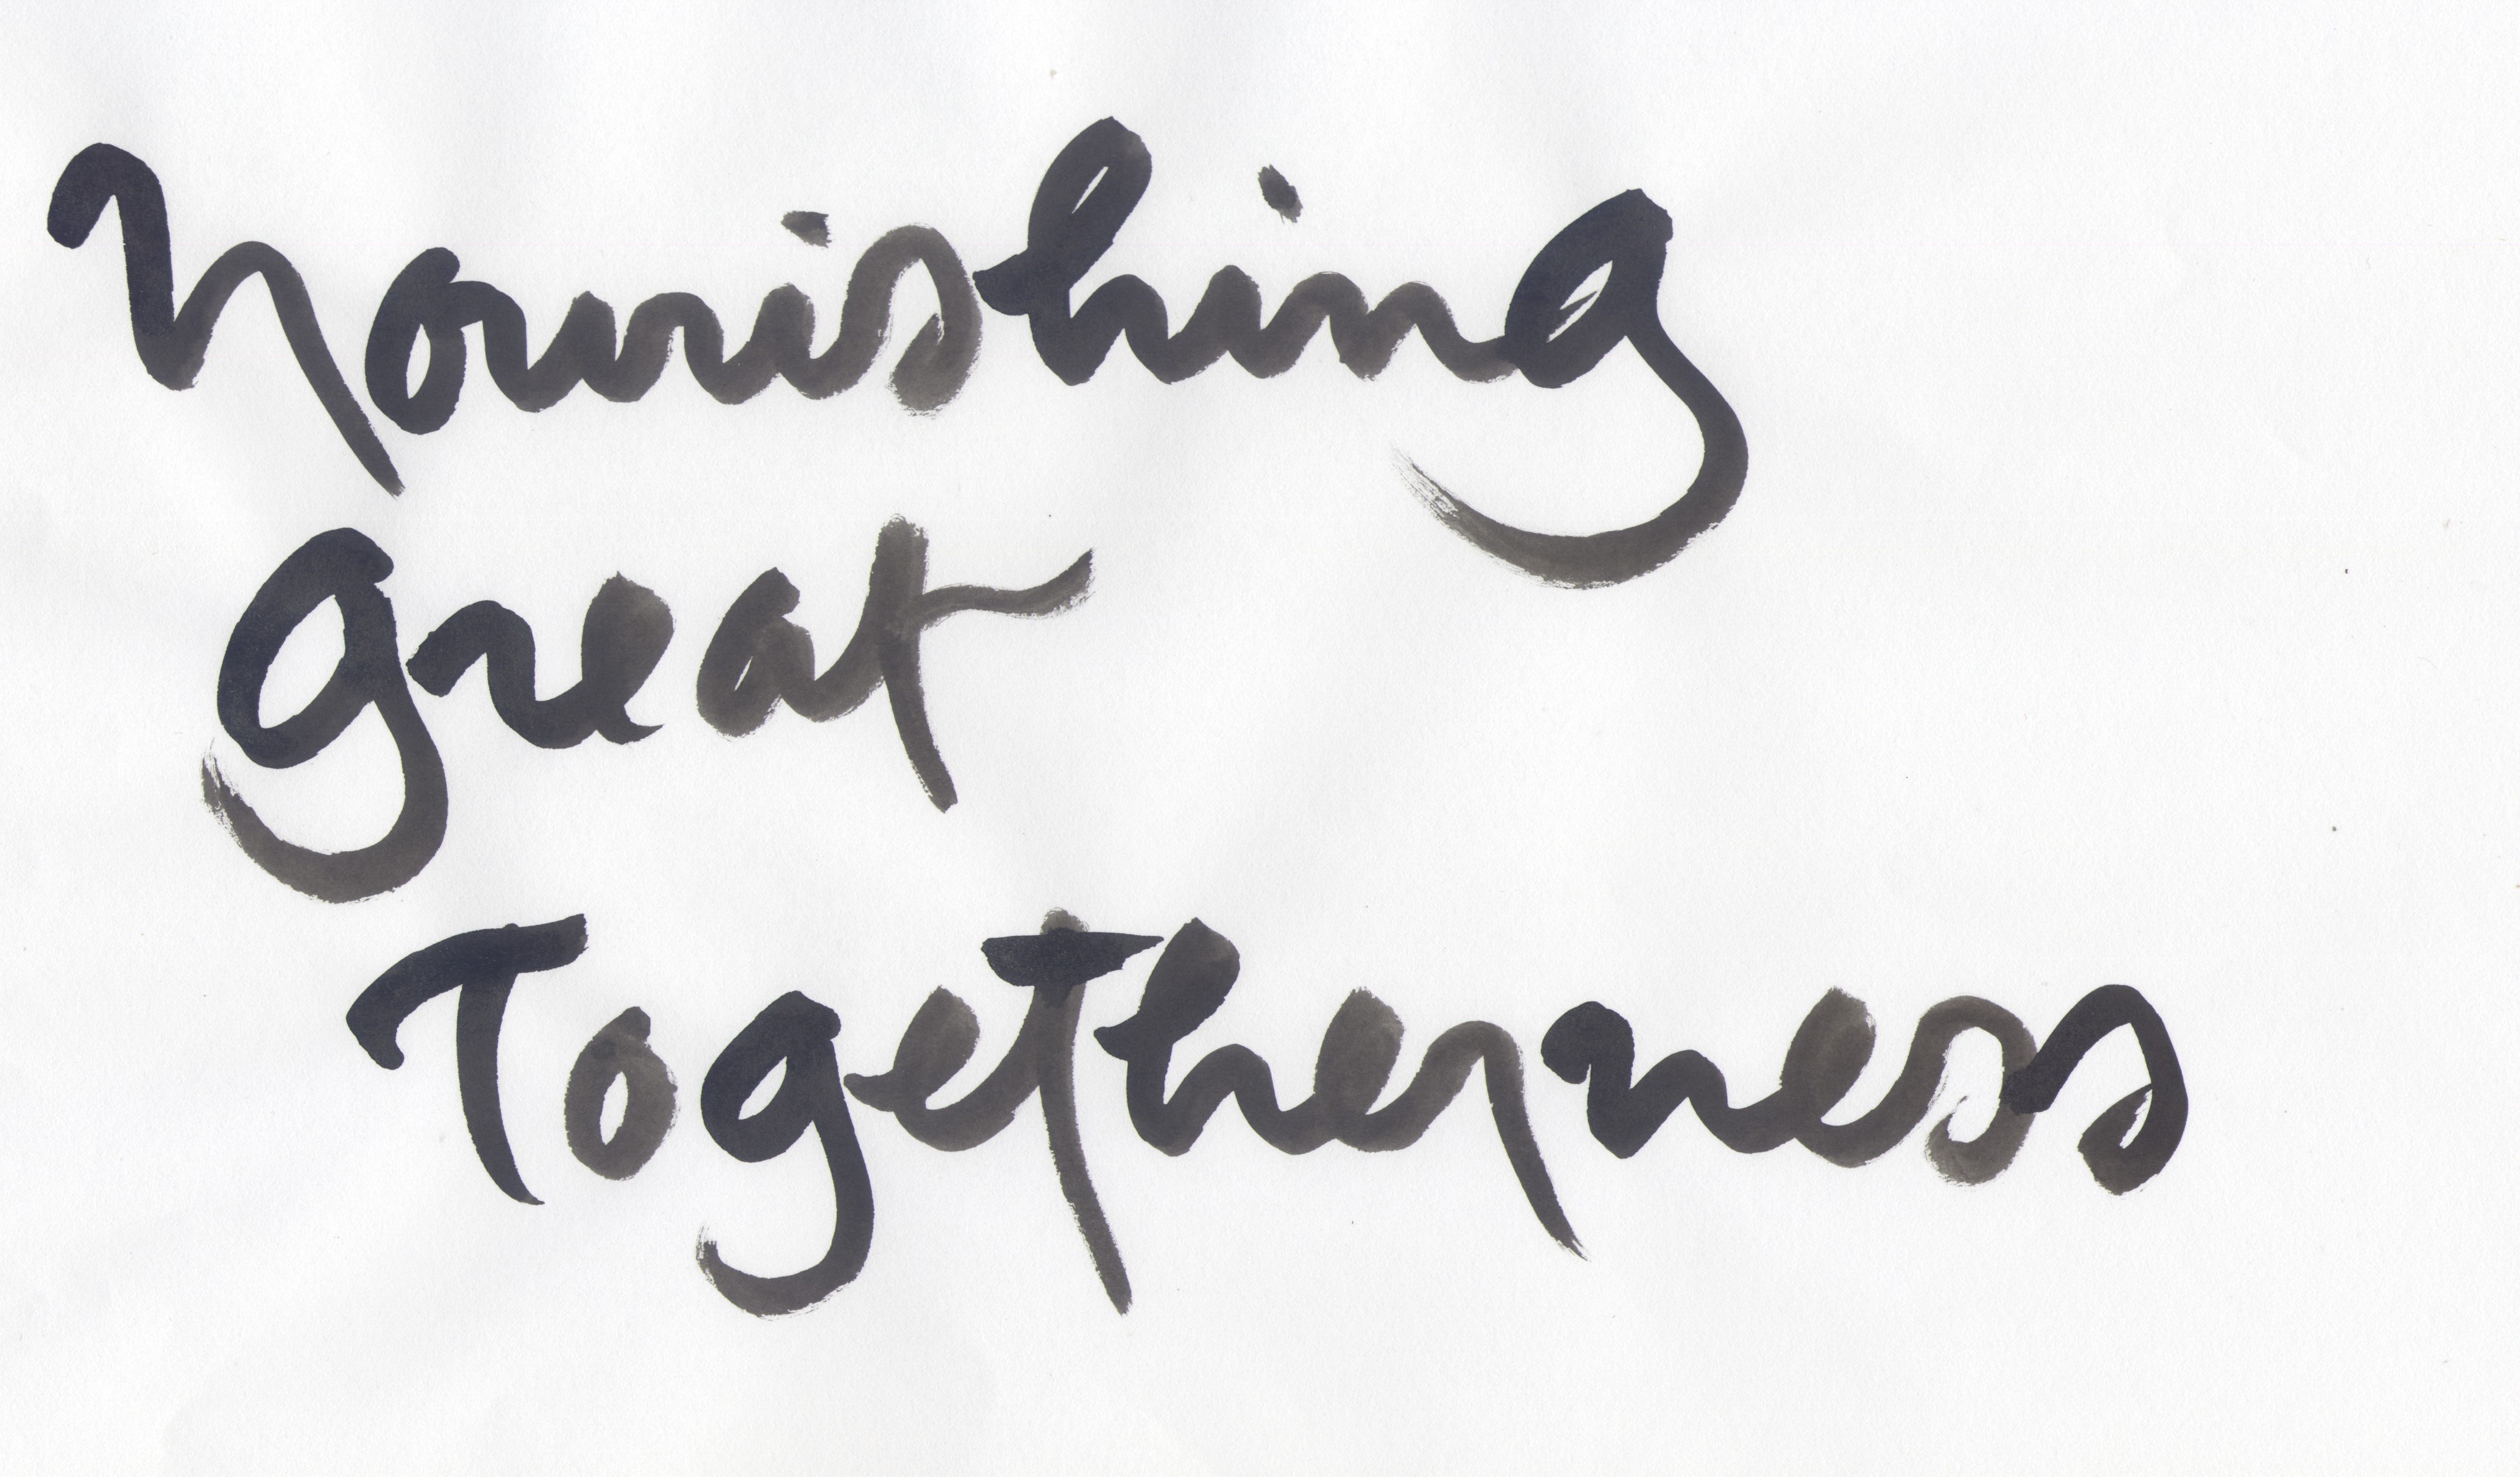 nourishing
great
Togetherness